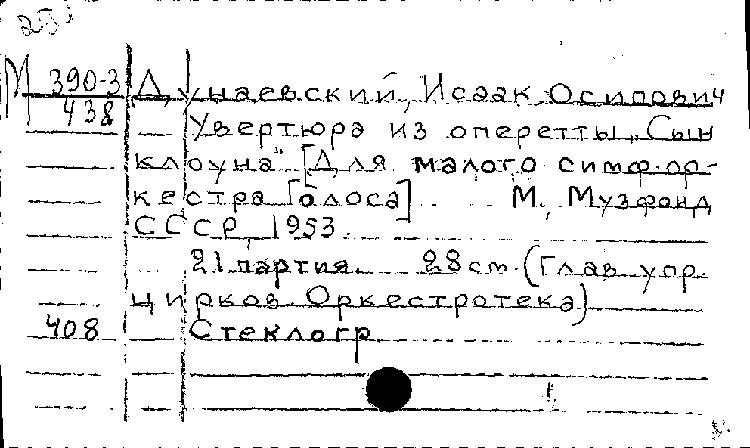 25
М 390-3 Дунаевский, Исаак Осипович
438 Увертюра из оперетты „Сын
клоуна" [Для малого симф. ор-
кестра. Голоса] М., Музфонд
СССР, 1953.
21 партия. 28 см. (Глав. упр.
цирков. Оркестротека)
408 Стеклогр.